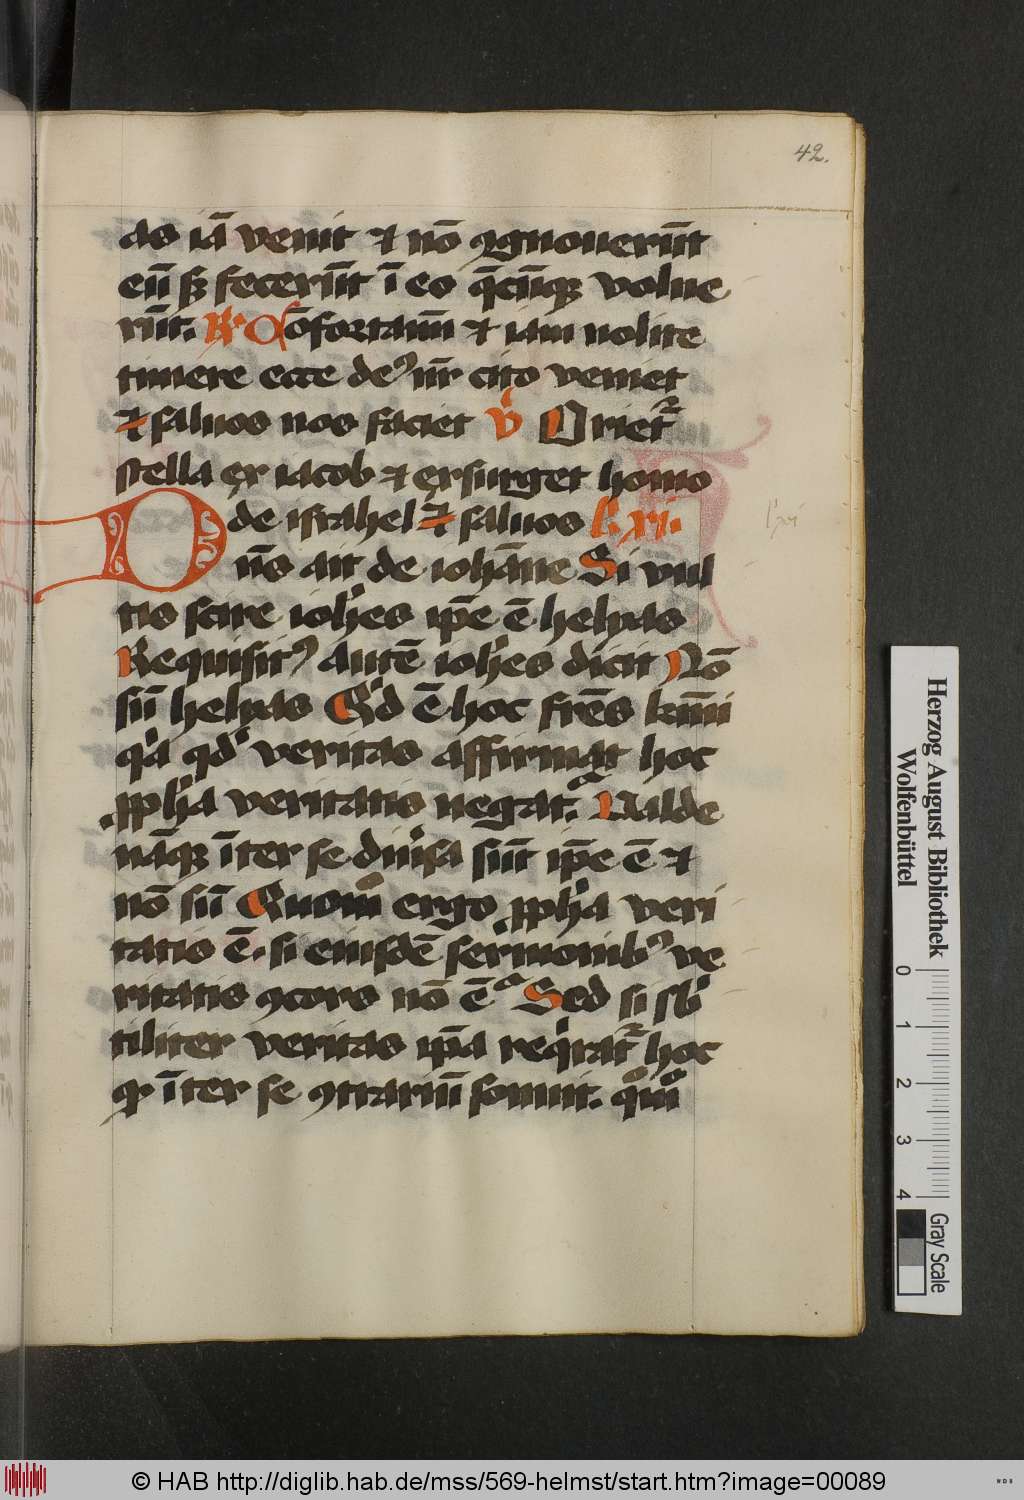 42.
as iā venit ⁊ nō ꝯgnouerūt
eū sꝫ fecerūt ī eo q̄cūqꝫ volue
rūt. R̷. Cōfortamī ⁊ iam nolite
timere ecce deꝰ nr̄ cito veniet
⁊ saluos nos faciet V̷ Orietᷣ
stella ex iacob ⁊ exsurget homo
de israhel ⁊ saluos l. xi.
l' xi
Dn̄s ait de iohāne Si vul
tis scire ioh̄es ip̄e ē helyas
Requisitꝰ autē ioh̄es dicit Nō
sū helyas Qͥd ē hoc fr̄es kn̄mi
qͥa qd̓ veritas affirmat hoc
ꝓph̓a veritatis negatᷣ. Valde
nāqꝫ īter se diuͥsa sūt ip̄e ē ⁊
nō sū Quomͦ ergo ꝓph̓a veri
tatis ē. si eiusdē sermonibꝰ ve
ritatis ꝯcors nō ē Sed si sb̓
tiliter veritas ip̄a reqͥratᷣ hoc
qꝛ īter se ꝯtrariū sonuit. qͦmͦ
Herzog August Bibliothek
Wolfenbüttel
0 1 2 3 4
Gray Scale
© HAB http://diglib.hab.de/mss/569-helmst/start.htm?image=00089